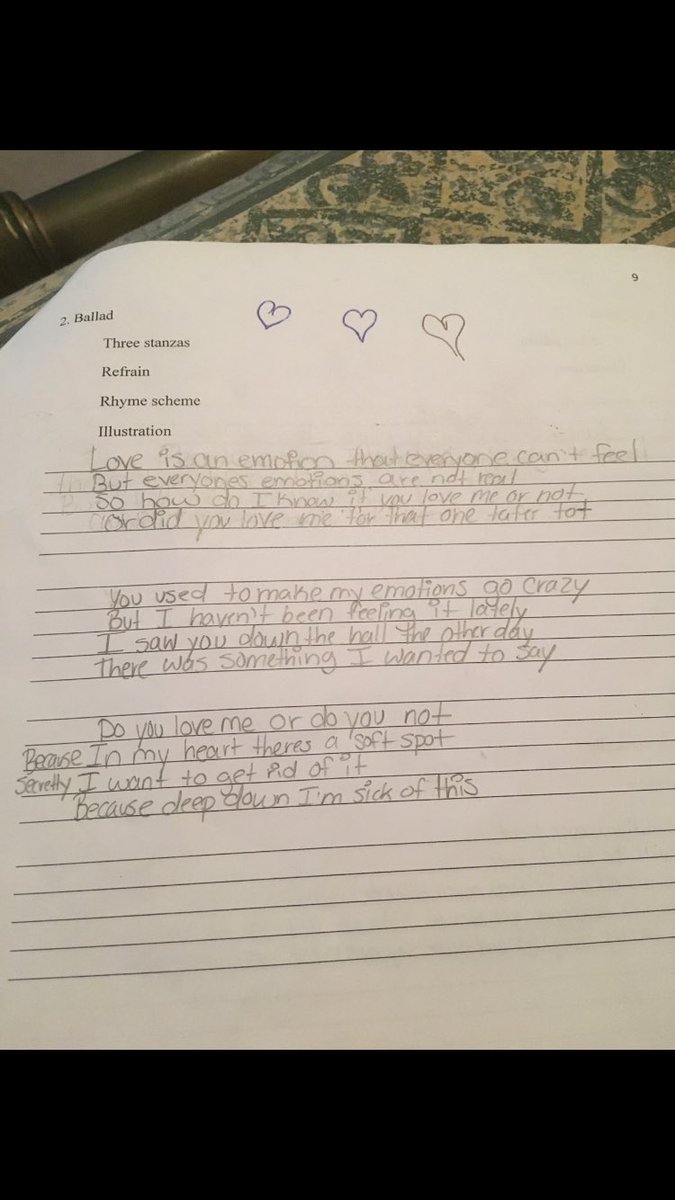 9
2. Ballad
Three stanzas
Refrain
Rhyme scheme
Illustration
Love is an emotion that everyone can't feel
But everyones emotions are not real
So how do I know if you love me or not
or did you love me for that one tater tot
You used to make my emotions go crazy
But I haven't been feeling it lately
I saw you down the hall the other day
There was something I wanted to say
Do you love me or do you not
Because In my heart theres a soft spot
Secretly I want to get rid of it
Because deep down I'm sick of this